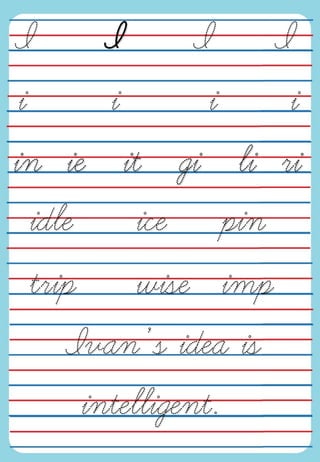 I I I I
i i i i
in ie it gi li ri
idle ice pin
trip wise imp
Ivan's idea is
intelligent.